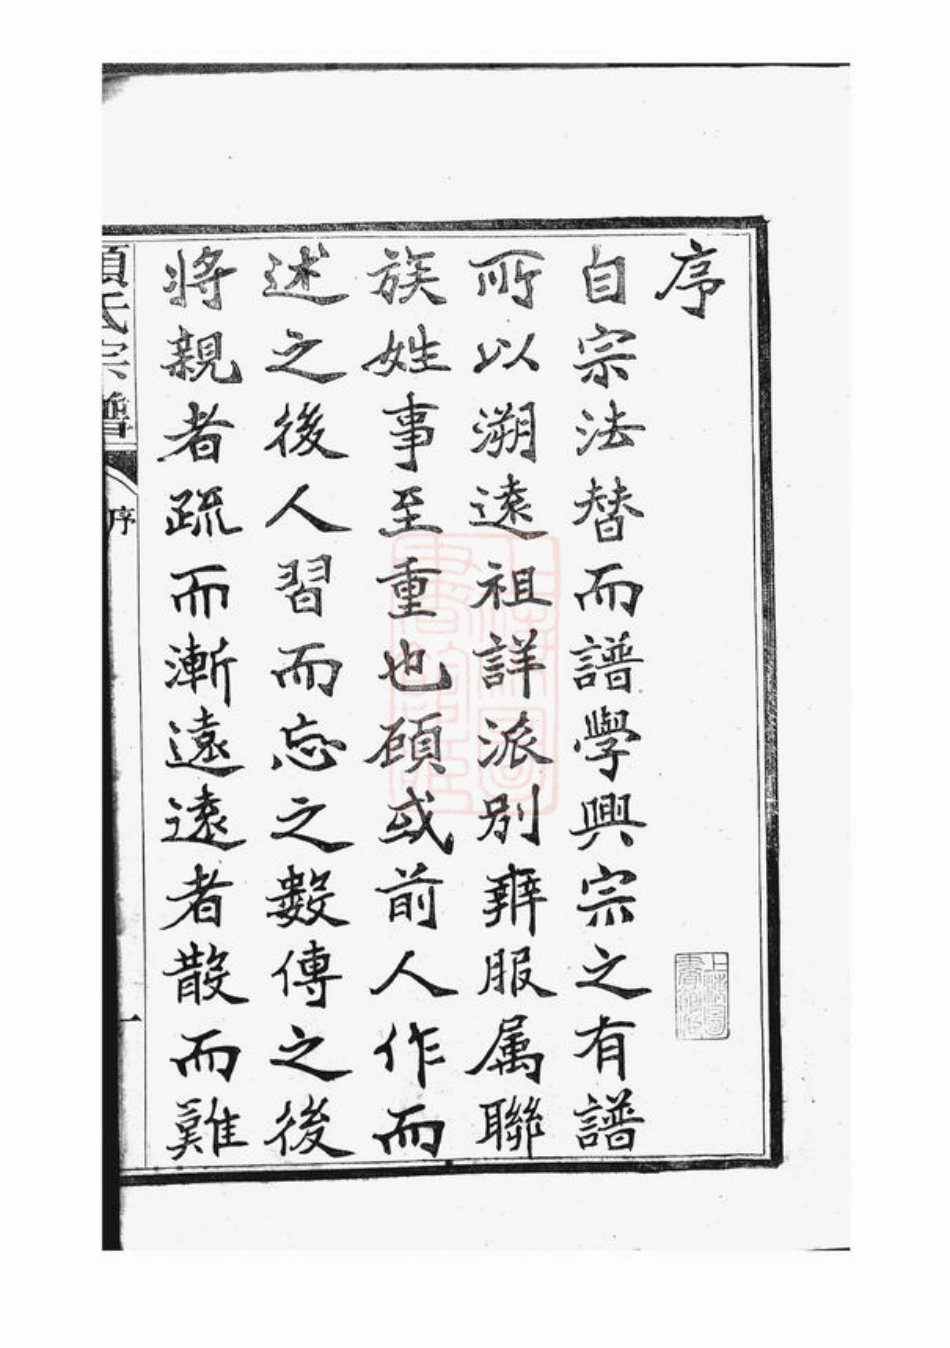 序
自宗法替而譜學興宗之有譜
所以溯遠祖詳派別辨服属聯
族姓事至重也顧或前人作而
述之後人習而忘之數傳之後
將親者疏而漸遠遠者散而難
氏宗譜
序
一